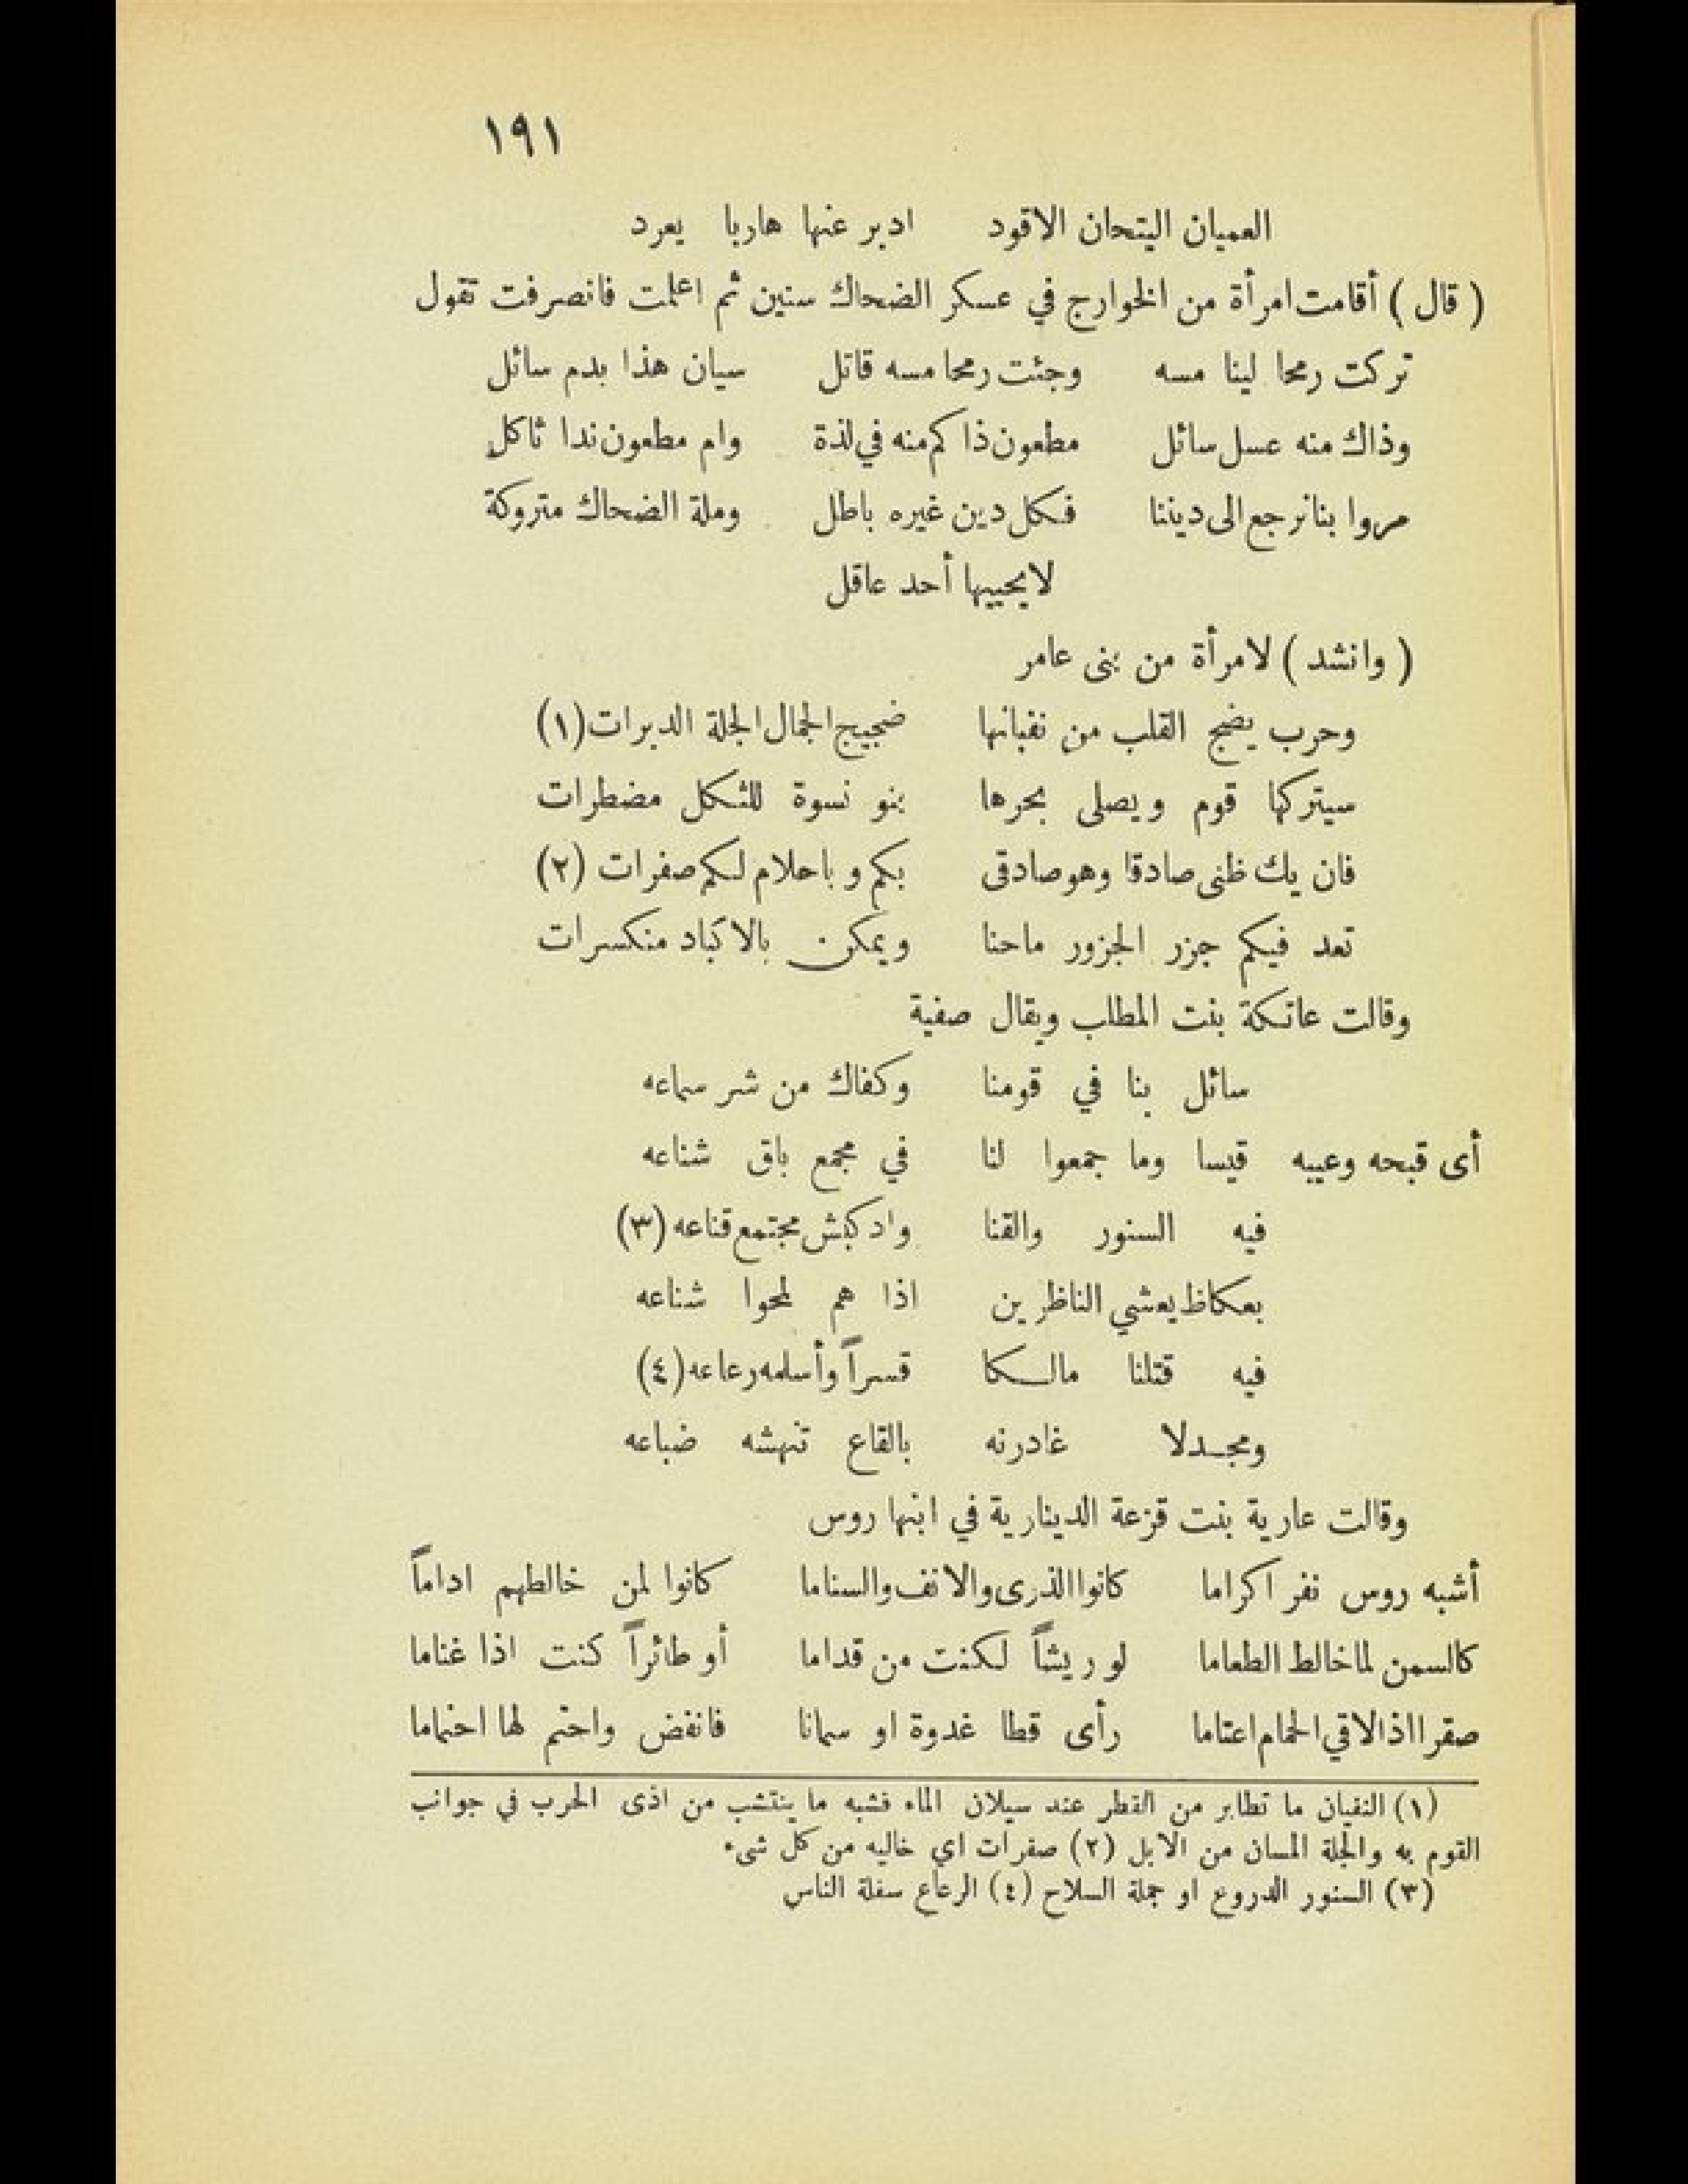 ١٩١
العميان اليتحان الاقود ادبر عنها هاربا يعرد
( قال ) أقامت امرأة من الخوارج في عسكر الضحاك سنين ثم اعلمت فانصرفت تقول
تركت رمحا لينا مسه وجئت رمحا مسه قاتل سيان هذا بدم سائل
وذاك منه عسل سائل مطعون ذا كم منه في لذة وام مطعون ندا ثاكل
مروا بنا نرجع الى ديننا فكل دين غيره باطل وملة الضحاك متروكة
لا يحيبها أحد عاقل
( وانشد ) لامرأة من بنى عامر
وحرب يضج القلب من نفيانها ضجيج الجمال الجلة الدبرات (١)
سيتركها قوم ويصلى بحرها بنو نسوة للثكل مضطرات
فان يك ظنى صادقا وهو صادقى بكم وباحلام لكم صفرات (٢)
تعد فيكم جزر الجزور ماحنا ويمكن بالاكباد منكسرات
وقالت عاتكة بنت المطلب ويقال صفية
سائل بنا في قومنا وكفاك من شر سماعه
أى قبحه وعيبه قيسا وما جمعوا لنا في مجمع باق شناعه
فيه السنور والقنا واد كبش مجتمع قناعه (٣)
بعكاظ يعشي الناظرين اذا هم لمحوا شناعه
فيه قتلنا مالكا قسراً وأسلمه رعاعه (٤)
ومجدلا غادرنه بالقاع تنهشه ضباعه
وقالت عارية بنت قزعة الدينارية في ابنها روس
أشبه روس نفر اكراما كانوا الذرى والانف والسناما كانوا لمن خالطهم اداماً
كالسمن لما خالط الطعاما لو ريشاً لكنت من قداما أو طائراً كنت اذا غناما
صقرا اذا لاقي الحمام اعتاما رأى قطا غدوة او سمانا فانفض واحتم لها احتماما
(١) النفيان ما تطاير من القطر عند سيلان الماء فشبه ما ينتشب من اذى الحرب في جوانب
القوم به والجلة المسان من الابل (٢) صفرات اي خاليه من كل شىء
(٣) السنور الدروع او جملة السلاح (٤) الرعاع سفلة الناس